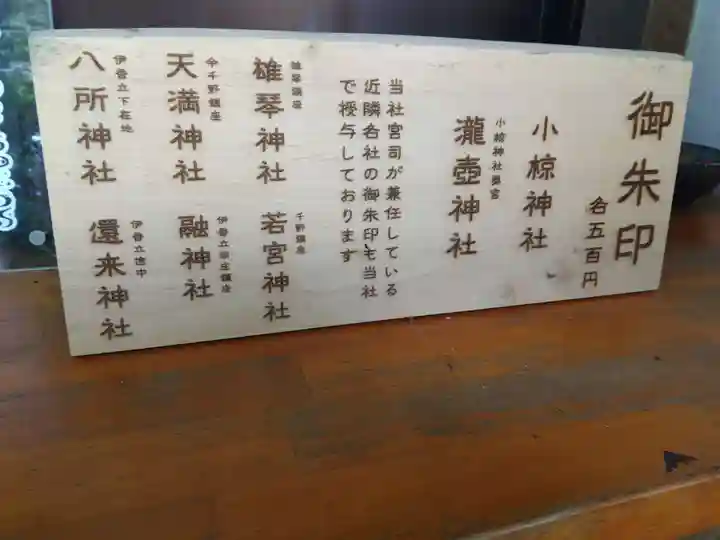 御朱印
各五百円
小椋神社
小椋神社奥宮
瀧壺神社
当社宮司が兼任している
近隣各社の御朱印も当社
で授与しております
雄琴鎮座
雄琴神社
千野鎮座
若宮神社
今千野鎮座
天満神社
伊香立南庄鎮座
融神社
伊香立下在地
八所神社
伊香立途中
還来神社